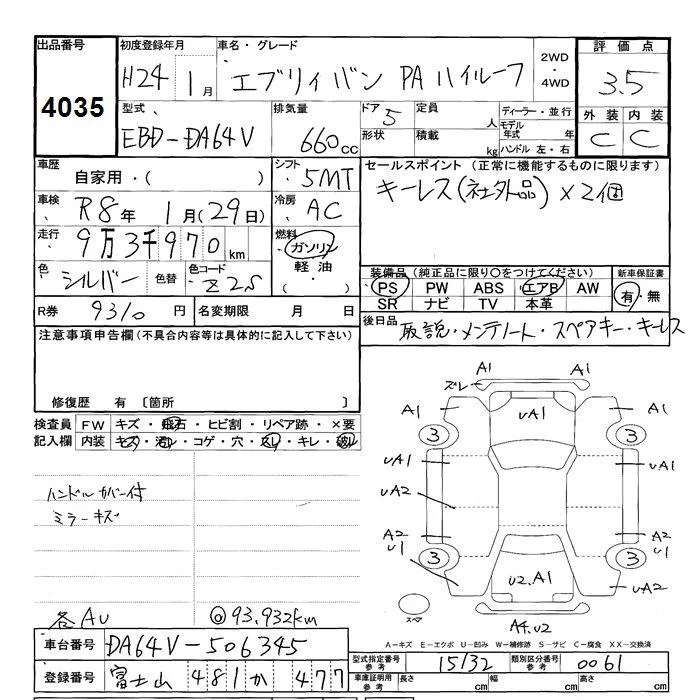 出品番号
4035
初度登録年月
H24 1月
車名・グレード
エブリィバン PA ハイルーフ
2WD
・
4WD
評価点
3.5
外装 内装
C C
型式
EBD-DA64V
排気量
660cc
ドア 5
形状
定員 人
積載 kg
ディーラー・並行
モデル年式 年
ハンドル 左・右
車歴
自家用・( )
シフト
5MT
車検
R8年 1月(29日)
冷房
AC
走行
9万3千970km
燃料
ガソリン
軽油
( )
色
シルバー
色替
色コード
Z2S
R券 9310円
名変期限 月 日
セールスポイント(正常に機能するものに限ります)
キーレス(社外品)×2個
装備品(純正品に限り〇をつけてください)
PS PW ABS エアB AW
SR ナビ TV 本革
新車保証書
有・無
後日品
取説・メンテノート・スペアキー・キーレス
注意事項申告欄(不具合内容等は具体的に記入して下さい)
修復歴 有 〔箇所 〕
検査員記入欄
FW キズ・飛石・ヒビ割・リペア跡・×要
内装 キズ・汚レ・コゲ・穴・スレ・キレ・破レ
ハンドルカバー付
ミラーキズ
各AU
◎93,932km
ズレ A1 A1
A1 UA1 A1
3 3
UA1 UA1
UA2 UA2
A2 A2
U1 U1
3 3
U2.A1 UA2
スペア
A4.U2
A=キズ E=エクボ U=凹み W=補修跡 S=サビ C=腐食 XX=交換済
車台番号 DA64V-506345
登録番号 富士山 481 か 477
型式指定番号 参考 15132
類別区分番号 参考 0061
車庫証明用 参考 長さ cm 幅 cm 高さ cm